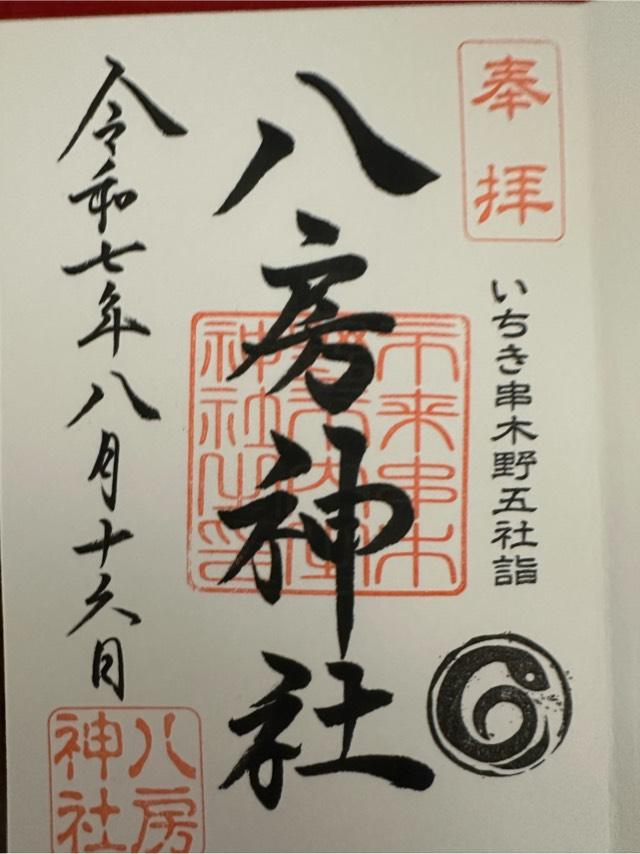 奉拝
いちき串木野五社詣
八房神社
令和七年八月十六日
八房
神社